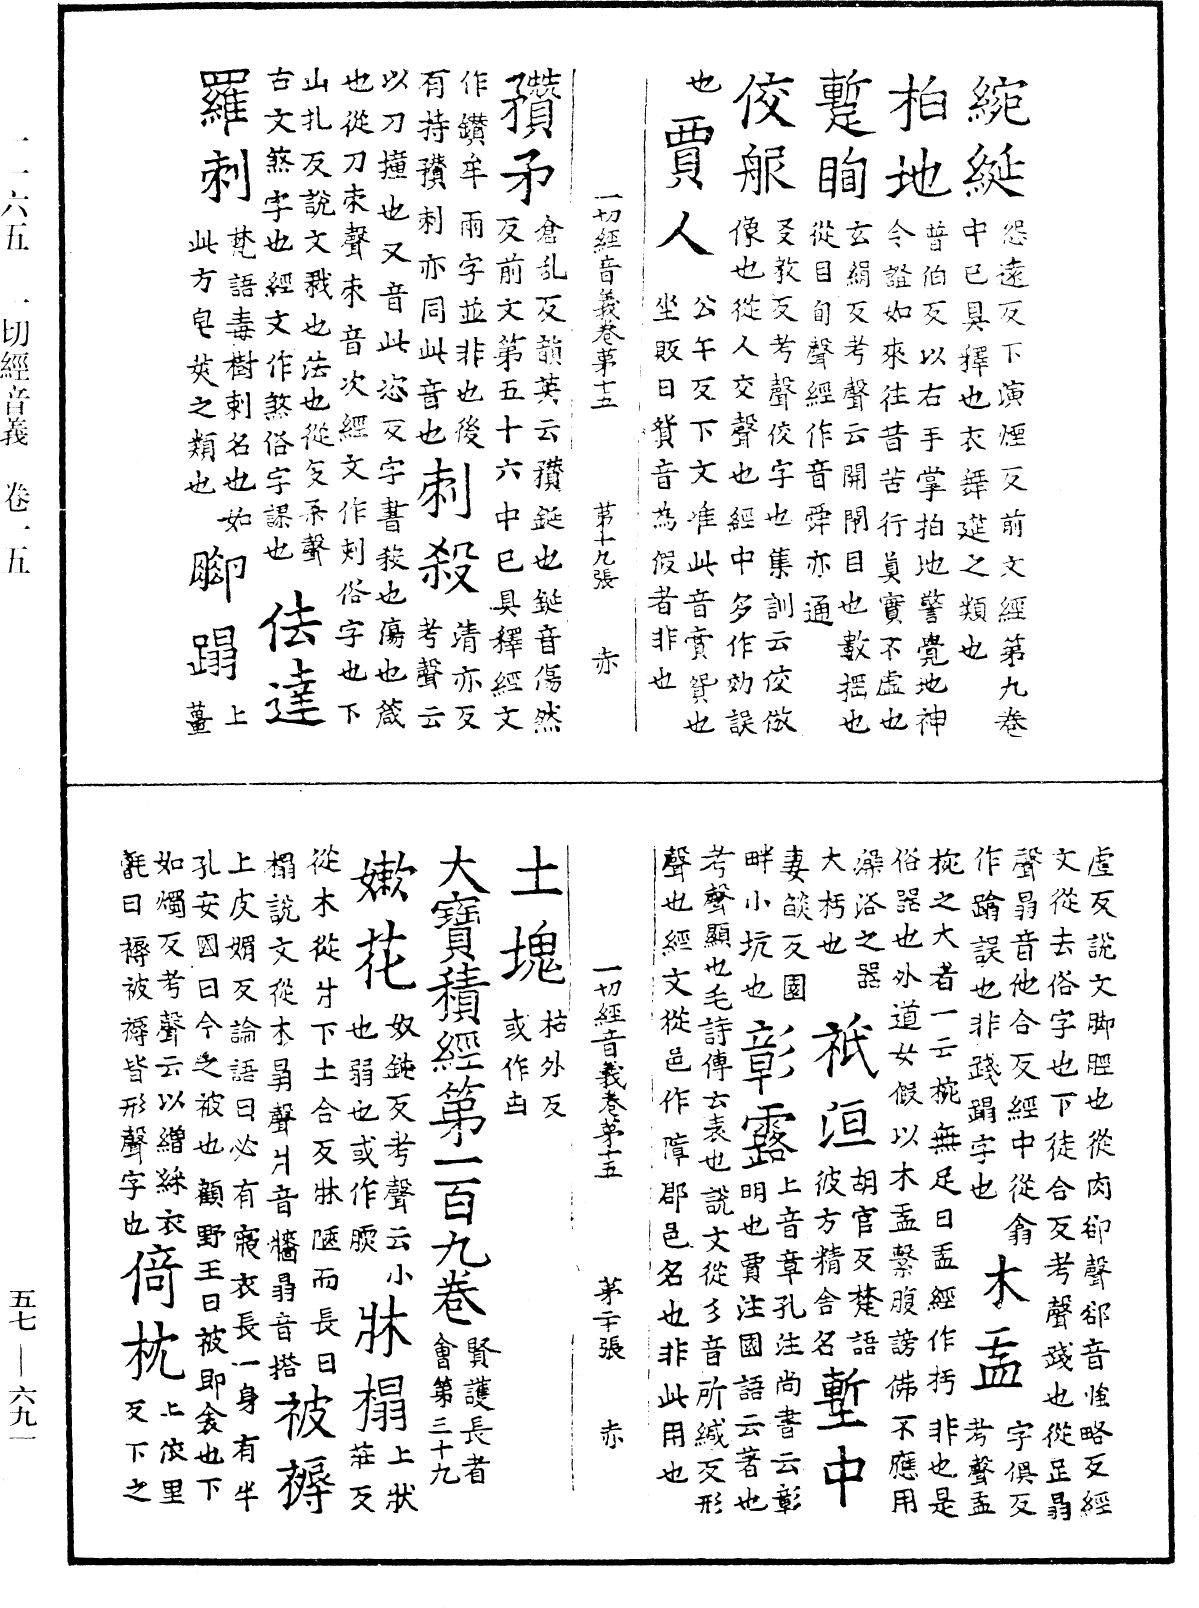 綩綖 怨遠反下演煙反前文經第九卷
中已具釋也衣舞筵之類也
拍地 普伯反以右手掌拍地警覺地神
令證如來往昔苦行真實不虛也
蹔眴 玄絹反考聲云開閉目也數摇也
從目旬聲經作音舜亦通
佼 爻教反考聲佼字也集訓云佼倣
像也從人交聲也經中多作効誤
也 賈人 公午反下文准此音賣貨也
坐販曰貨音為假者非也
一切經音義卷第十五 第十九張 赤
穳矛 倉乱反韻英云穳鋋也鋋音傷然
反前文第五十六中已具釋經文
作鑽牟兩字並非也後
有持穳刺亦同此音也 刺殺 清亦反
考聲云
以刀撞也又音此恣反字書殺也傷也箴
也從刀朿聲朿音次經文作刾俗字也下
山扎反說文戮也法也從殳杀聲
古文煞字也經文作煞俗字誤也 佉達
羅刺 梵語毒樹刺名也如
此方皂莢之類也 脚蹋 上
薑
虐反說文脚脛也從肉卻聲卻音強略反經
文從去俗字也下徒合反考聲踐也從足㬱
聲㬱音他合反經中從翕
作蹹誤也非踐蹋字也 木盂 字俱反
考聲盂
椀之大者一云椀無足曰盂經作杇非也是
俗器也外道女假以木盂繫腹謗佛不應用
澡浴之器
大杇也 祇洹 胡官反梵語
彼方精舍名 塹中
妻燄反園
畔小坑也 彰露 上音章孔注尚書云彰
明也賈注國語云著也
考聲顯也毛詩傳云表也說文從彡音所緘反形
聲也經文從邑作鄣郡邑名也非此用也
一切經音義卷第十五 第二十張 赤
土塊 枯外反
或作凷
大寶積經第一百九卷 賢護長者
會第三十九
嫰花 奴鈍反考聲云小
也弱也或作腝 牀榻 上狀
莊反
從木從爿下土合反牀陿而長曰
榻說文從木㬱聲爿音牆㬱音搭 被褥
上皮媚反論語曰必有寢衣長一身有半
孔安國曰今之被也顧野王曰被即衾也下
如燭反考聲云以繒綵衣
氈曰褥被褥皆形聲字也 倚枕 上依里
反下之
一一六五 一切經音義 卷一五 五七—六九一